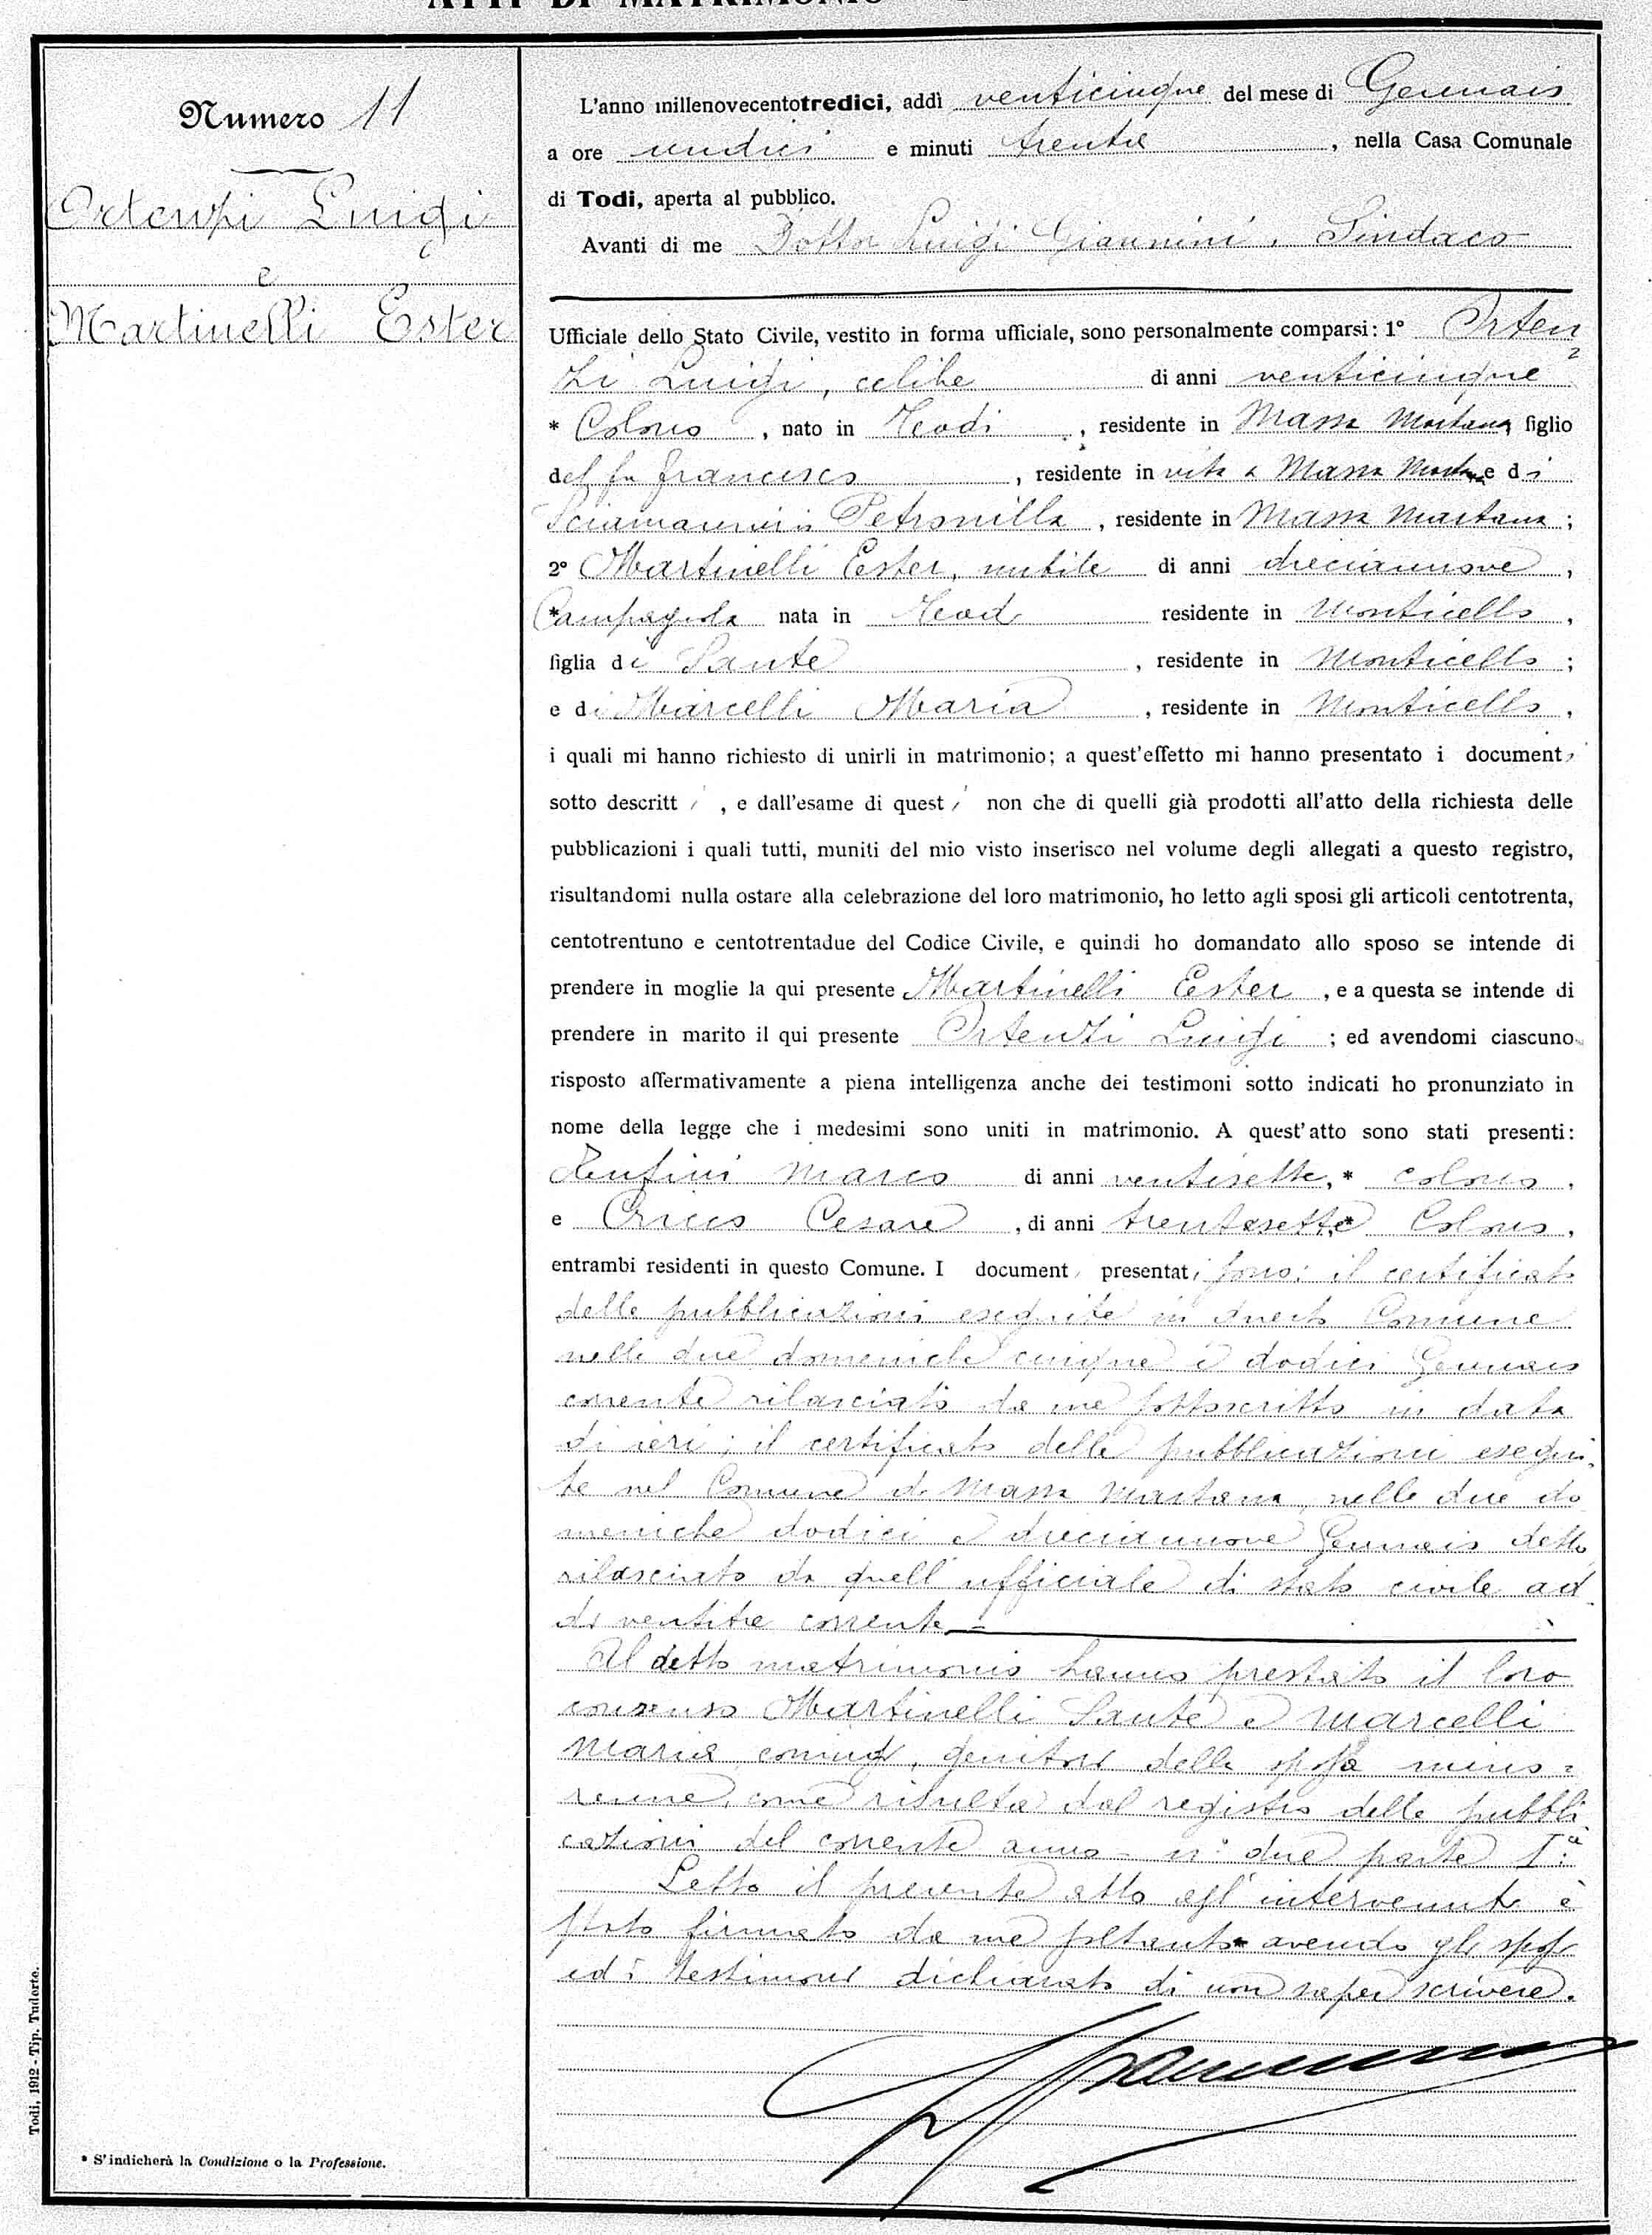 ATTI DI MATRIMONIO
Numero 11
Ortenzi Luigi
e
Martinelli Ester
L'anno millenovecentotredici, addì venticinque del mese di Gennaio
a ore undici e minuti trenta, nella Casa Comunale
di Todi, aperta al pubblico.
Avanti di me Dottor Luigi Giannini, Sindaco
Ufficiale dello Stato Civile, vestito in forma ufficiale, sono personalmente comparsi: 1° Orten
zi Luigi, celibe di anni venticinque
* Colono, nato in Todi, residente in Massa Martana, figlio
del fu Francesco, residente in vita a Massa Martana e di
Petronilla, residente in Massa Martana;
2° Martinelli Ester, nubile di anni dieciannove,
* Campagnola nata in Todi residente in Monticello,
figlia di Sante, residente in Monticello;
e di Marcelli Maria, residente in Monticello,
i quali mi hanno richiesto di unirli in matrimonio; a quest'effetto mi hanno presentato i documenti
sotto descritti, e dall'esame di questi non che di quelli già prodotti all'atto della richiesta delle
pubblicazioni i quali tutti, muniti del mio visto inserisco nel volume degli allegati a questo registro,
risultandomi nulla ostare alla celebrazione del loro matrimonio, ho letto agli sposi gli articoli centotrenta,
centotrentuno e centotrentadue del Codice Civile, e quindi ho domandato allo sposo se intende di
prendere in moglie la qui presente Martinelli Ester, e a questa se intende di
prendere in marito il qui presente Ortenzi Luigi; ed avendomi ciascuno
risposto affermativamente a piena intelligenza anche dei testimoni sotto indicati ho pronunziato in
nome della legge che i medesimi sono uniti in matrimonio. A quest'atto sono stati presenti:
Rufini Marco di anni ventisette, * colono,
e Cesare, di anni trentasette * Colono,
entrambi residenti in questo Comune. I documenti presentati sono: il certificato
delle pubblicazioni eseguite in questo Comune
nelle due domeniche cinque e dodici Gennaio
corrente rilasciato da me sottoscritto in data
di ieri; il certificato delle pubblicazioni esegui-
te nel Comune di Massa Martana, nelle due do
meniche dodici e dieciannove Gennaio detto
rilasciato da quell'ufficiale di stato civile ad
dì ventitre corrente.
Al detto matrimonio hanno prestato il loro
consenso Martinelli Sante e Marcelli
Maria coniugi, genitori della sposa mino=
renne, come risulta dal registro delle pubbli
cazioni del corrente anno - n° due parte I.ª
Letto il presente atto agl'intervenuti è
stato firmato da me soltanto avendo gli sposi
ed i testimoni dichiarato di non saper scrivere.
Giannini
* S'indicherà la Condizione o la Professione.
Todi, 1912 - Tip. Tuderte.